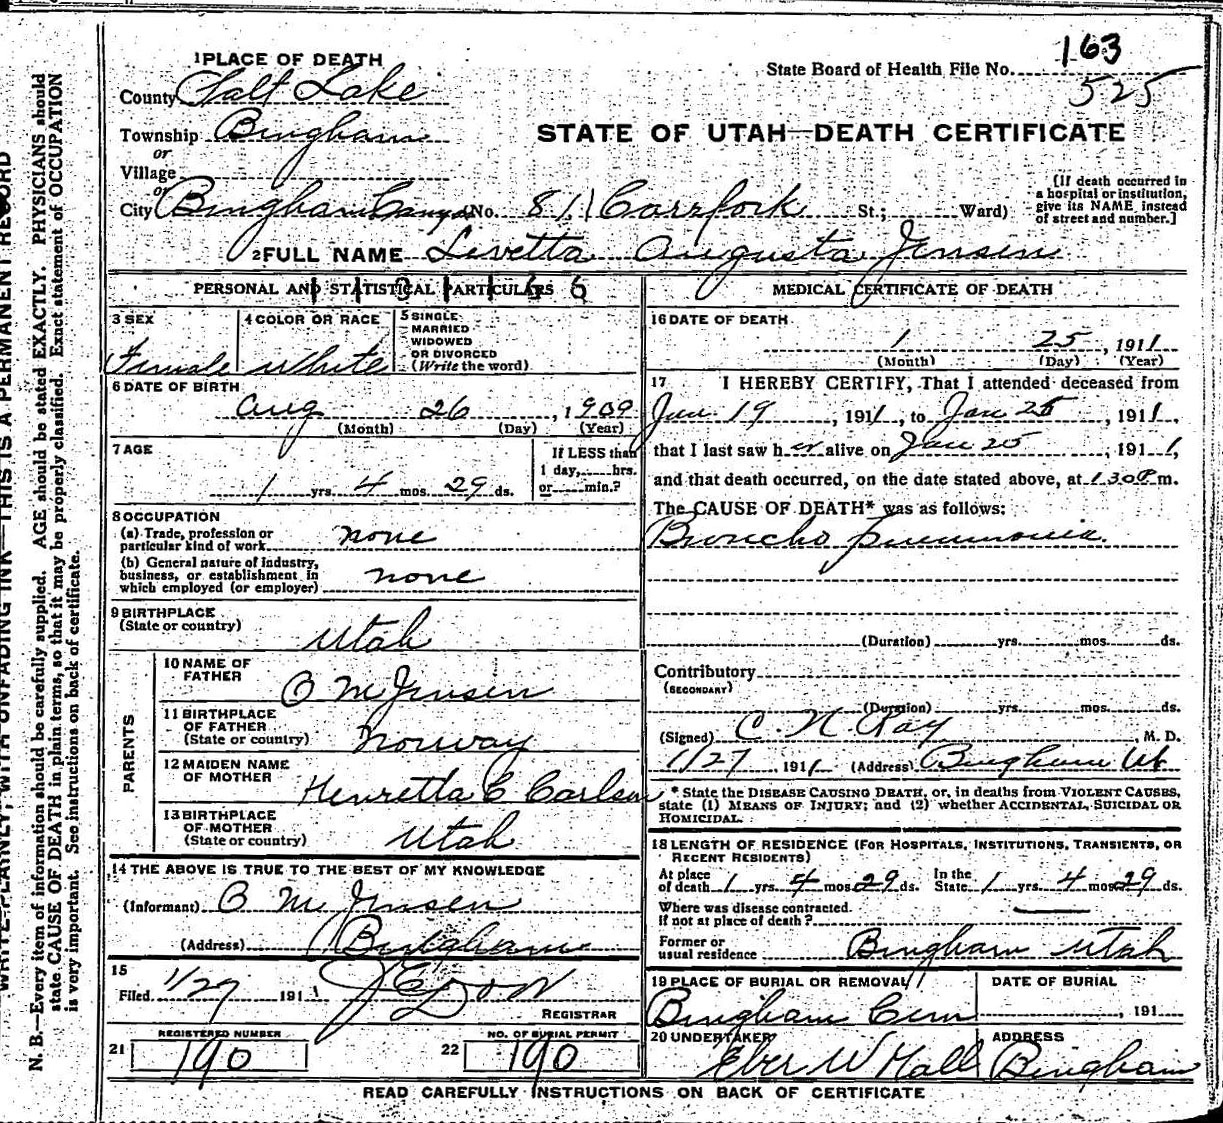 1 PLACE OF DEATH
County Salt Lake
Township Bingham
or
Village
or
City Bingham Canyon No. 81 Carrfork St.; Ward)
State Board of Health File No. 163
525
STATE OF UTAH—DEATH CERTIFICATE
[If death occurred in
a hospital or institution,
give its NAME instead
of street and number.]
2 FULL NAME Livetta Augusta Jensen
PERSONAL AND STATISTICAL PARTICULARS
3 SEX
Female
4 COLOR OR RACE
White
5 SINGLE
MARRIED
WIDOWED
OR DIVORCED
(Write the word)
6 DATE OF BIRTH
Aug 26, 1909
(Month) (Day) (Year)
7 AGE
1 yrs. 4 mos. 29 ds.
If LESS than
1 day, hrs.
or min.?
8 OCCUPATION
(a) Trade, profession or
particular kind of work none
(b) General nature of industry,
business, or establishment in
which employed (or employer) none
9 BIRTHPLACE
(State or country)
Utah
PARENTS
10 NAME OF
FATHER O M Jensen
11 BIRTHPLACE
OF FATHER
(State or country) Norway
12 MAIDEN NAME
OF MOTHER Henretta C Carlson
13 BIRTHPLACE
OF MOTHER
(State or country) Utah
14 THE ABOVE IS TRUE TO THE BEST OF MY KNOWLEDGE
(Informant) O M Jensen
(Address) Bingham
15
Filed 1/27 1911
REGISTRAR
REGISTERED NUMBER
21 190
NO. OF BURIAL PERMIT
22 190
MEDICAL CERTIFICATE OF DEATH
16 DATE OF DEATH
1 25, 1911
(Month) (Day) (Year)
17 I HEREBY CERTIFY, That I attended deceased from
Jan 19, 1911, to Jan 25, 1911,
that I last saw her alive on Jan 25, 1911,
and that death occurred, on the date stated above, at 1.30 P m.
The CAUSE OF DEATH* was as follows:
Broncho pneumonia.
(Duration) yrs. mos. ds.
Contributory
(SECONDARY)
(Duration) yrs. mos. ds.
(Signed) C. N. Ray, M. D.
1/27, 1911 (Address) Bingham Ut
* State the DISEASE CAUSING DEATH, or, in deaths from VIOLENT CAUSES,
state (1) MEANS OF INJURY; and (2) whether ACCIDENTAL, SUICIDAL OR
HOMICIDAL.
18 LENGTH OF RESIDENCE (FOR HOSPITALS, INSTITUTIONS, TRANSIENTS, OR
RECENT RESIDENTS)
At place of death 1 yrs. 4 mos. 29 ds. In the State 1 yrs. 4 mos. 29 ds.
Where was disease contracted.
If not at place of death?
Former or
usual residence Bingham Utah
19 PLACE OF BURIAL OR REMOVAL
Bingham Cem
DATE OF BURIAL
, 191
20 UNDERTAKER
Eber W Hall
ADDRESS
Bingham
READ CAREFULLY INSTRUCTIONS ON BACK OF CERTIFICATE
WRITE PLAINLY, WITH UNFADING INK—THIS IS A PERMANENT RECORD
N. B.—Every item of information should be carefully supplied. AGE should be stated EXACTLY. PHYSICIANS should
state CAUSE OF DEATH in plain terms, so that it may be properly classified. Exact statement of OCCUPATION
is very important. See instructions on back of certificate.